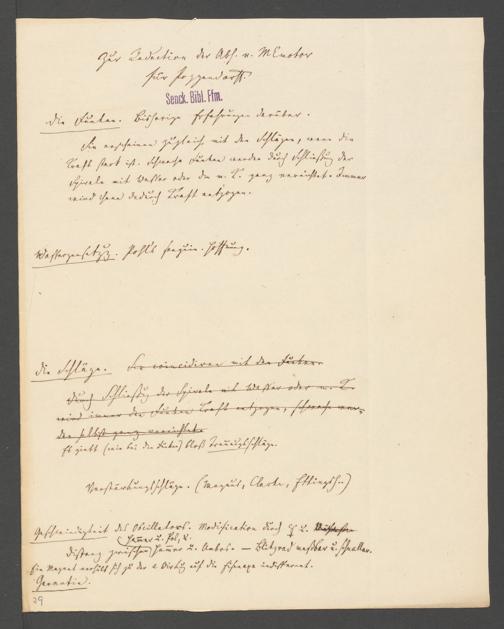 Zur Redaction der Abh. v. MEmotor
für Poggendorff.
Senck. Bibl. Ffm.
Die Funken. Bisherige Erfahrungen darüber.
Sie erscheinen zugleich mit den Schlägen, wenn die
Kraft stark ist. Schwache Funken werden durch Schließung der
Spirale mit Wasser oder dem m. K. ganz vernichtet. Immer
wird ihnen dadurch Kraft entzogen.
Wasserzersetzg. Pohls Hoffnung.
Die Schläge. Sie coincidiren mit den Funken.
Durch Schließung der Spirale mit Wasser oder m. K.
wird immer den Funken Kraft entzogen, schwache wer-
den selbst ganz vernichtet.
Es giebt (wie bei den Funken) bloß Trennungsschläge.
Verstärkungsschläge. (Magnus, Clarke, Ettingsh.)
Geschwindigkeit des Oscillators. Modification durch u.
Hammer u. Pol, u.
Distanz zwischen Hammer u. Ambos. — Blitzrad meßbar u. schneller.
Ein Magnet verhält sich zu der Wirkg auf die indifferent.
29